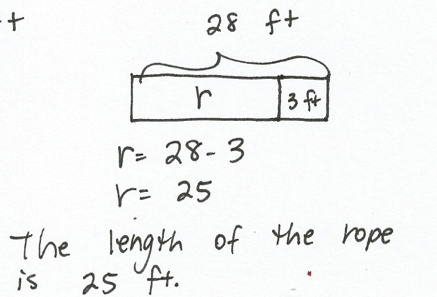 +
28 ft
r 3 ft
r= 28-3
r= 25
The length of the rope
is 25 ft.